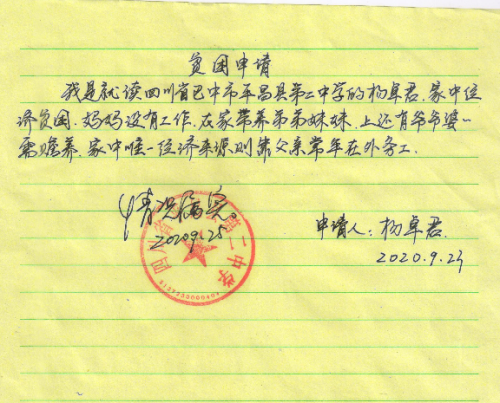 贫困申请
我是就读四川省巴中市平昌县第二中学的杨卓君.家中经
济贫困.妈妈没有工作.在家带养弟弟妹妹.上还有爷爷婆婆
需赡养.家中唯一经济来源则靠父亲常年在外务工.
情况属实。
2020.9.25
申请人:杨卓君.
2020.9.23
四川省 第二中学